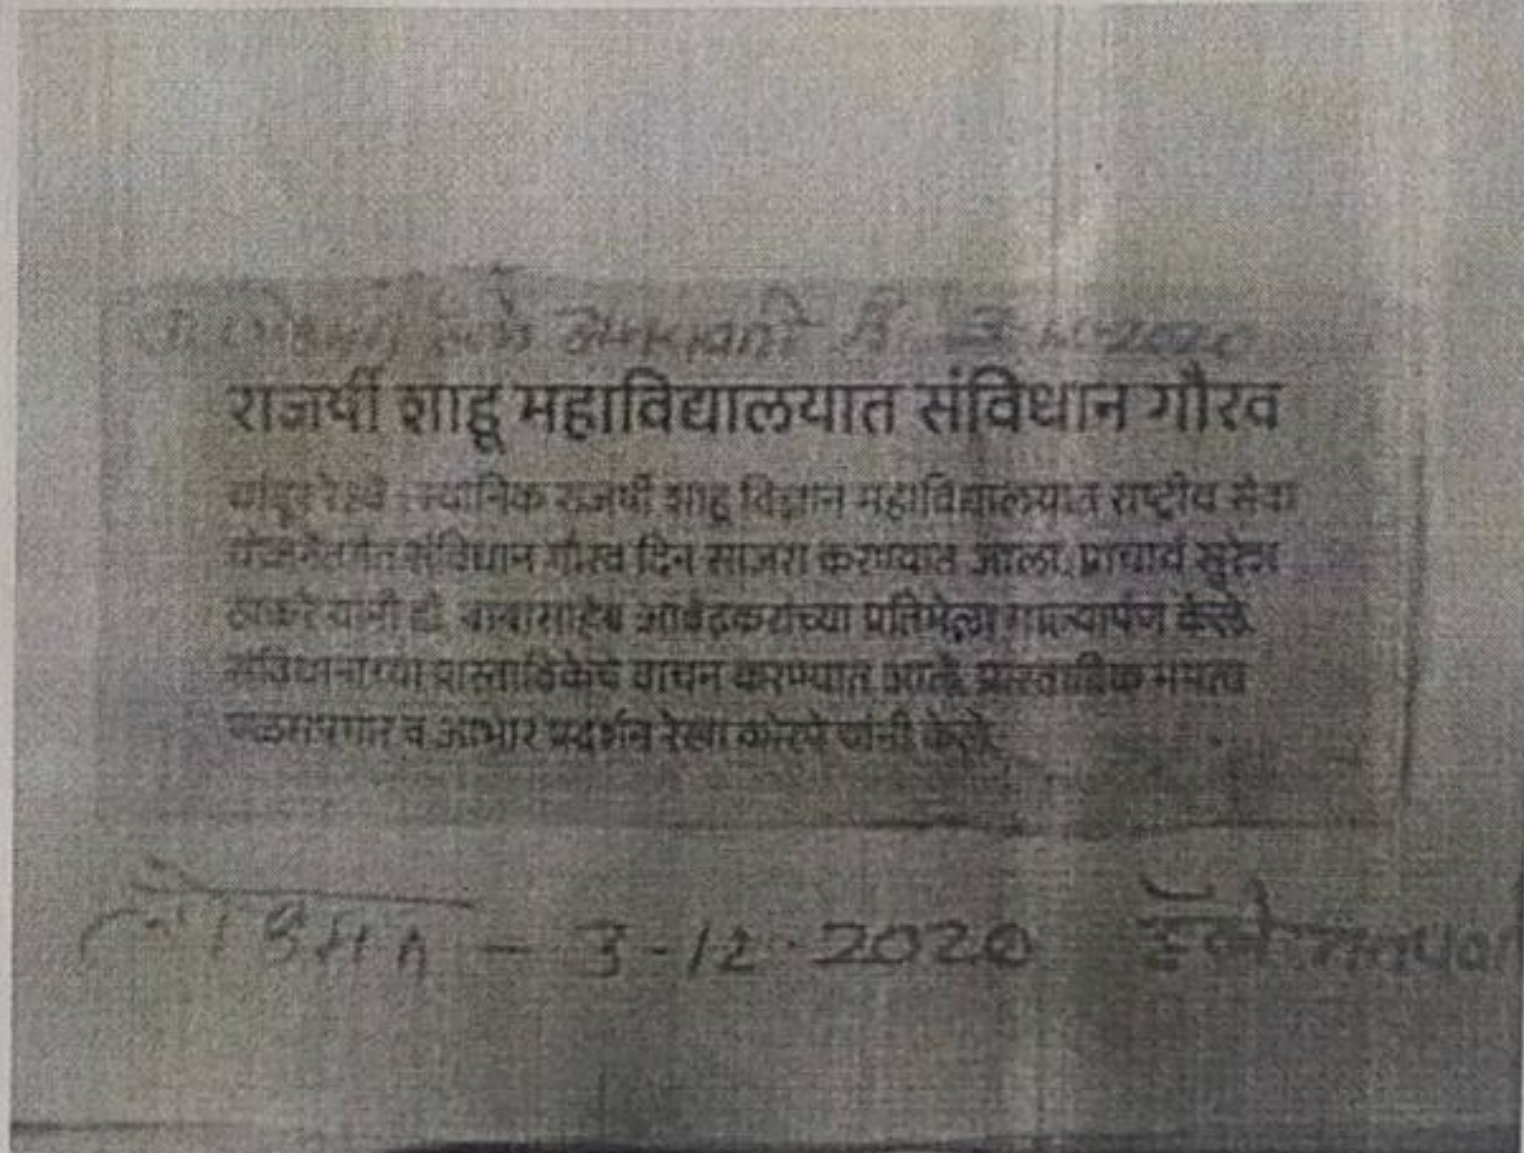 3-12-2020
राजर्षी शाहू महाविद्यालयात संविधान गौरव
चांदूर रेल्वे : स्थानिक राजर्षी शाहू विज्ञान महाविद्यालयात राष्ट्रीय सेवा
योजनेतर्गत संविधान गौरव दिन साजरा करण्यात आला. प्राचार्य सुरेश
ठाकरे यांनी डॉ. बाबासाहेब आंबेडकरांच्या प्रतिमेला माल्यार्पण केले.
संविधानाच्या प्रास्ताविकेचे वाचन करण्यात आले. प्रास्ताविक ममता
व आभार प्रदर्शन रेखा यांनी केले.
- 3-12-2020